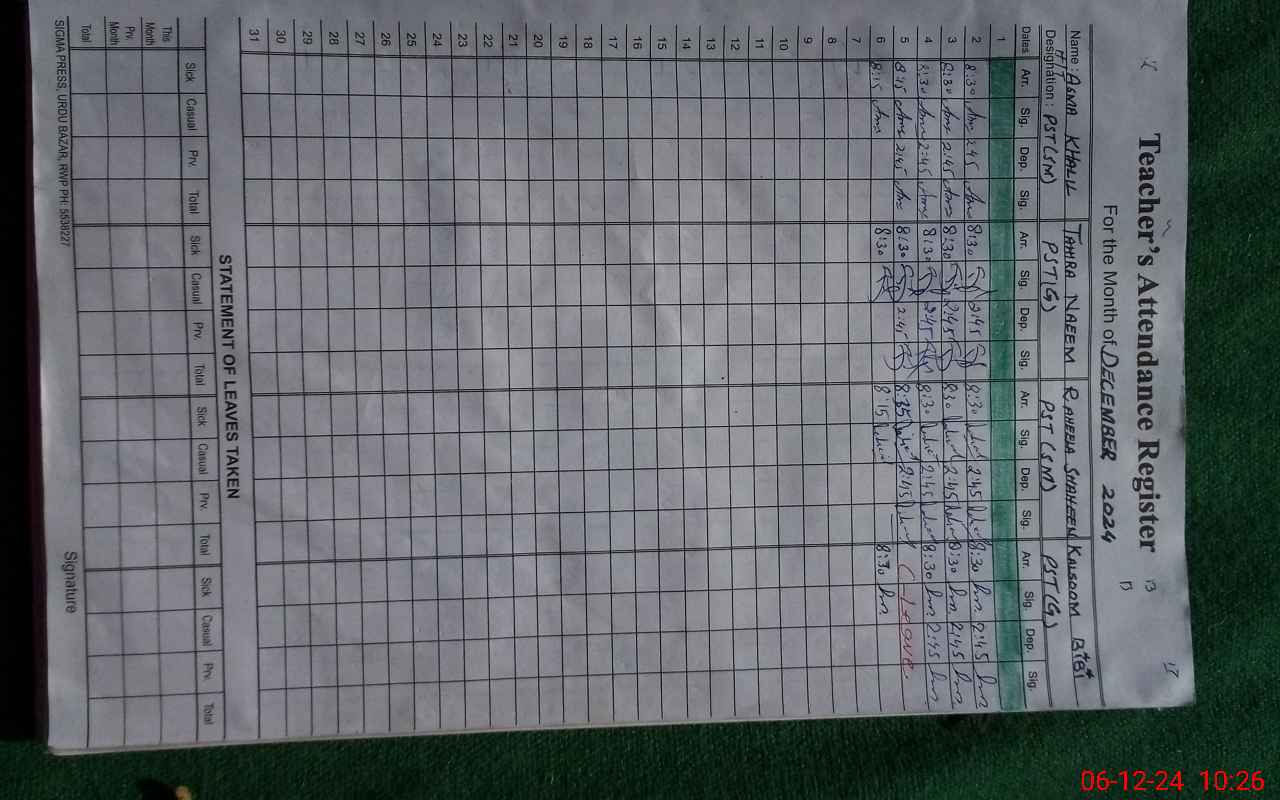 Teacher's Attendance Register
For the Month of DECEMBER 2024
Name: ASMA KHALIL TAHRA NAEEM RAHEELA SHAHEEN KALSOOM BIBI
Designation: PST(SM) PST(G) PST(SM) PST(G)
Dates Arr. Sig. Dep. Sig. Arr. Sig. Dep. Sig. Arr. Sig. Dep. Sig. Arr. Sig. Dep. Sig.
1
2 8:30 2:45 8:30 2:45 8:30 2:45 8:30 2:45
3 8:30 2:45 8:30 2:45 8:30 2:45 8:30 2:45
4 8:30 2:45 8:30 2:45 8:30 2:45 8:30 2:45
5 8:45 2:45 8:30 2:45 8:35 2:45 C-leave
6 8:15 8:30 8:15 8:30
7
8
9
10
11
12
13
14
15
16
17
18
19
20
21
22
23
24
25
26
27
28
29
30
31
STATEMENT OF LEAVES TAKEN
Sick Casual Prv. Total Sick Casual Prv. Total Sick Casual Prv. Total Sick Casual Prv. Total
This Month
Prv. Month
Total
Signature
SIGMA PRESS, URDU BAZAR, RWP PH: 5538227
06-12-24 10:26